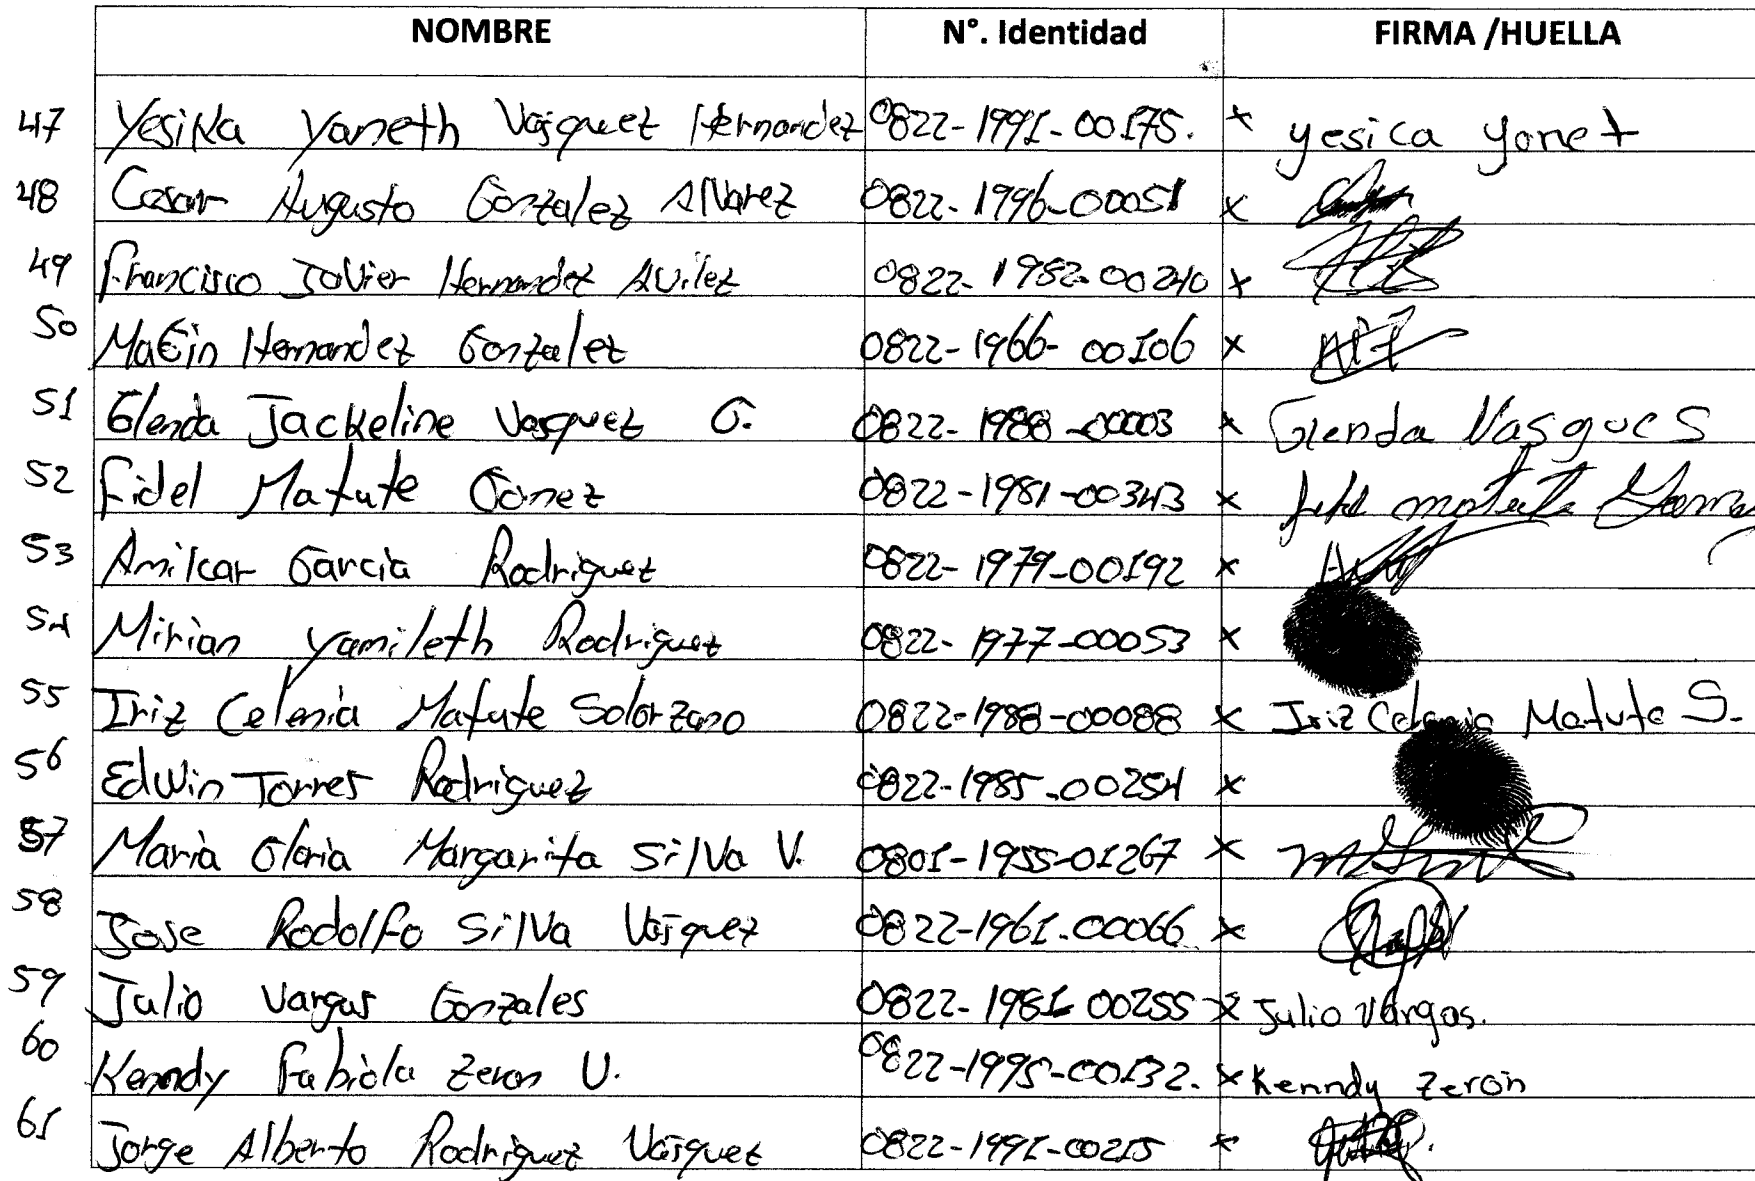 NOMBRE N°. Identidad FIRMA /HUELLA
47 Yesika Yaneth Vásquez Hernandez 0822-1991-00175. x yesica yonet
48 Cesar Augusto Gonzalez Alvarez 0822-1996-00051 x
49 Francisco Javier Hernandez Avilez 0822-1982-00240 x
50 Hernandez Gonzalez 0822-1966-00106 x
51 Glenda Jackeline Vasquez G. 0822-1988-00003 x Glenda Vasques
52 Fidel Matute Gomez 0822-1981-00343 x fidel matute
53 Amilcar Garcia Rodriguez 0822-1979-00192 x
54 Mirian Yamileth Rodriguez 0822-1977-00053 x
55 Iriz Celenia Matute Solorzano 0822-1988-00088 x Iriz Celenia Matute S.
56 Edwin Torres Rodriguez 0822-1985-00254 x
57 Maria Gloria Margarita Silva V. 0801-1955-01267 x
58 Jose Rodolfo Silva Vásquez 0822-1961-00066 x
59 Julio Vargas Gonzales 0822-1981-00255 x Julio Vargas.
60 Kenndy Fabiola Zeron U. 0822-1995-00132. x Kenndy Zerón
61 Jorge Alberto Rodriguez Vásquez 0822-1991-00215 x